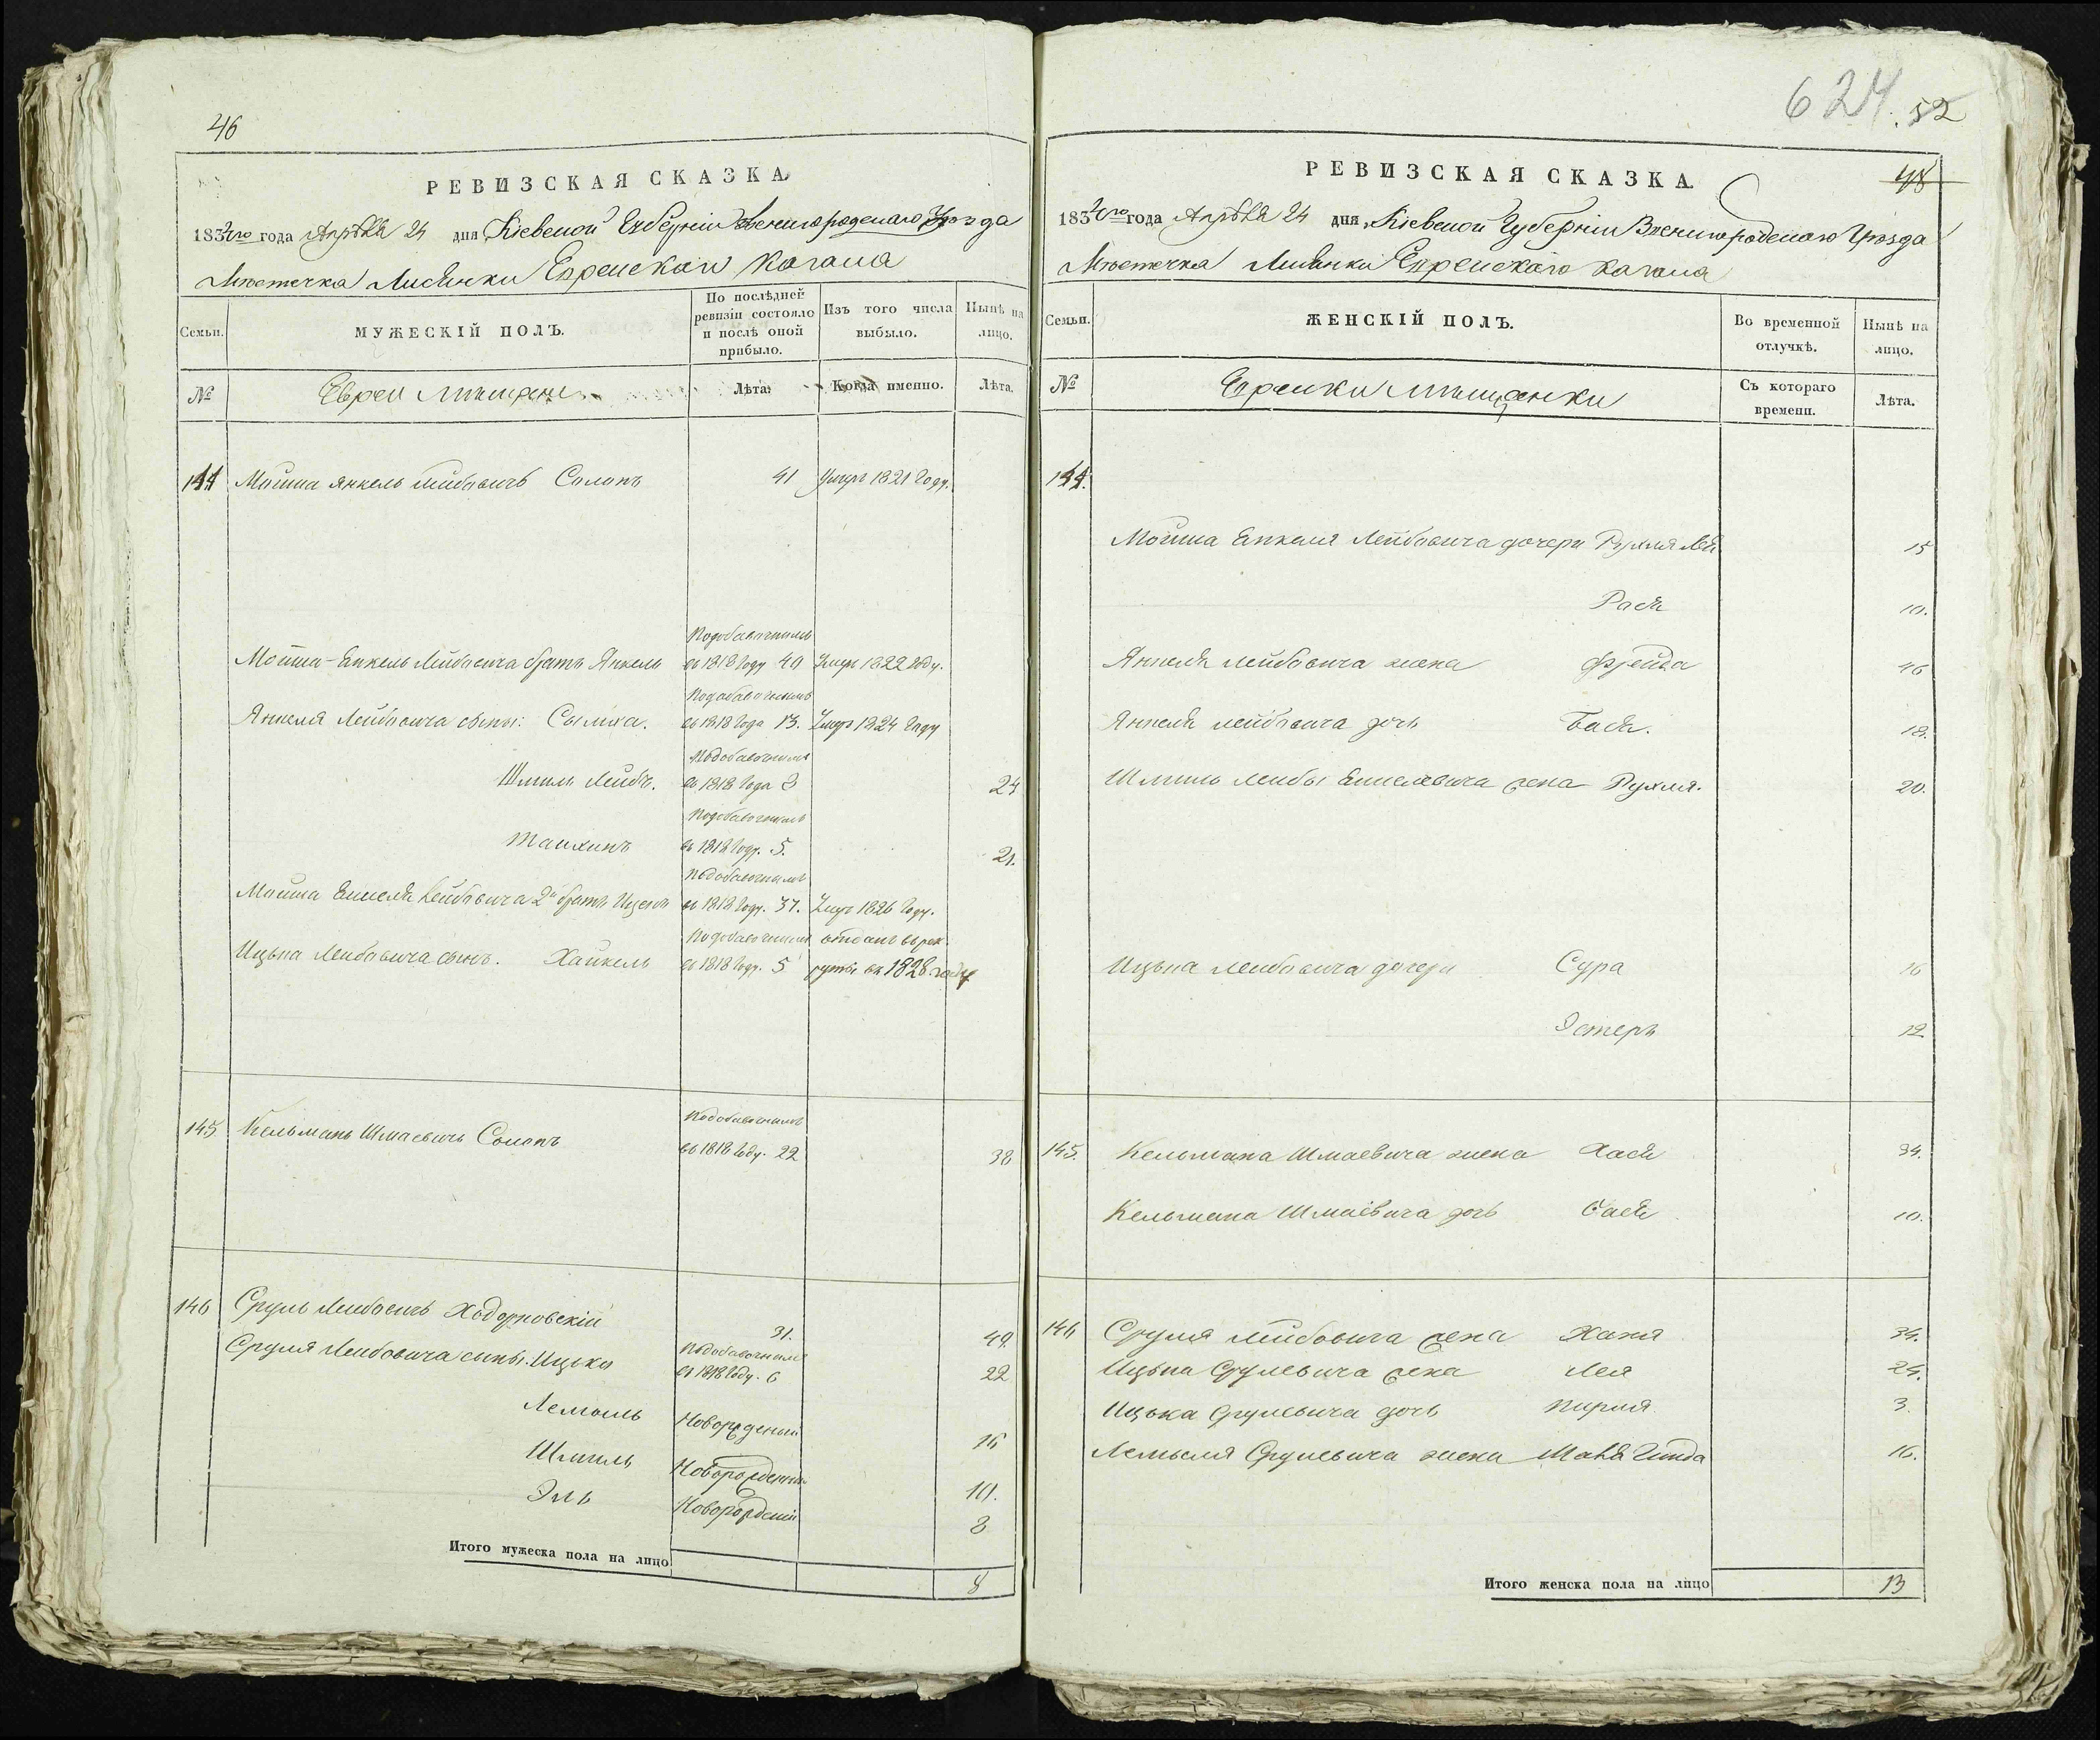 46
РЕВИЗСКАЯ СКАЗКА
1834го года Апрѣля 24 дня Кіевской Губерніи Звенигородскаго Уѣзда
Мѣстечка Лисянки Еврейскаго Кагала
Семьи.
МУЖЕСКІЙ ПОЛЪ.
По послѣдней ревизіи состояло и послѣ оной прибыло.
Изъ того числа выбыло.
Нынѣ на лицо.
№
Евреи Мѣщане
Лѣта.
Когда именно.
Лѣта.
144 Мошка Янкель Лейбовичъ Солопъ 41 Умеръ 1821 Году.
Подобавочнымъ
Мошка-Енкель Лейбовича братъ Янкель въ 1818 Году 40 Умеръ 1822 Году.
Подобавочнымъ
Янкеля Лейбовича сыны: Сымха. въ 1818 Года 13. Умеръ 1824 Году
Подобавочнымъ
Шмиль Лейбъ. въ 1818 Года 8 24
Подобавочнымъ
въ 1818 Году. 5. 21.
Подобавочнымъ
Мошка Енкеля Лейбовича 2й братъ Ицекъ въ 1818 Году. 37. Умеръ 1826 Году.
Подобавочнымъ отданъ въ рек-
Ицька Лейбовича сынъ. Хайкель въ 1818 Году. 5 руты въ 1828 году
Подобавочнымъ
145 Кельманъ Шмаевичъ Солопъ въ 1818 Году. 22 38
146 Сруль Лейбовичъ Ходорковскій 31. 49.
Подобавочнымъ
Сруля Лейбовича сыны. Ицько въ 1818 Году. 6 22
Лемыль Новорожденый 16
Шмиль Новорожденный 10.
Эль Новорожденый 8
Итого мужеска пола на лицо 8
624. 52
48
РЕВИЗСКАЯ СКАЗКА
1834го года Апрѣля 24 дня Кіевской Губерніи Звенигородскаго Уѣзда
Мѣстечка Лисянки Еврейскаго Кагала
Семьи.
ЖЕНСКІЙ ПОЛЪ.
Во временной отлучкѣ.
Нынѣ на лицо.
№
Еврейки Мѣщанки
Съ котораго времени.
Лѣта.
144.
Мошка Енкеля Лейбовича дочери Рухля Лея 15
Рася 10.
Янкеля Лейбовича жена Фрейда 46
Янкеля Лейбовича дочь Бася. 18.
Шмиль Лейбы Енкелевича жена Рухля. 20.
Ицька Лейбовича дочери Сура 16
Эстеръ 12
145. Кельмана Шмаевича жена Хася 34.
Кельмана Шмаевича дочь 10.
146 Сруля Лейбовича жена Ханя 34.
Ицька Срулевича жена Лея 24.
Ицька Срулевича дочь Пирля 3.
Лемыля Срулевича жена Гинда 16.
Итого женска пола на лицо 13